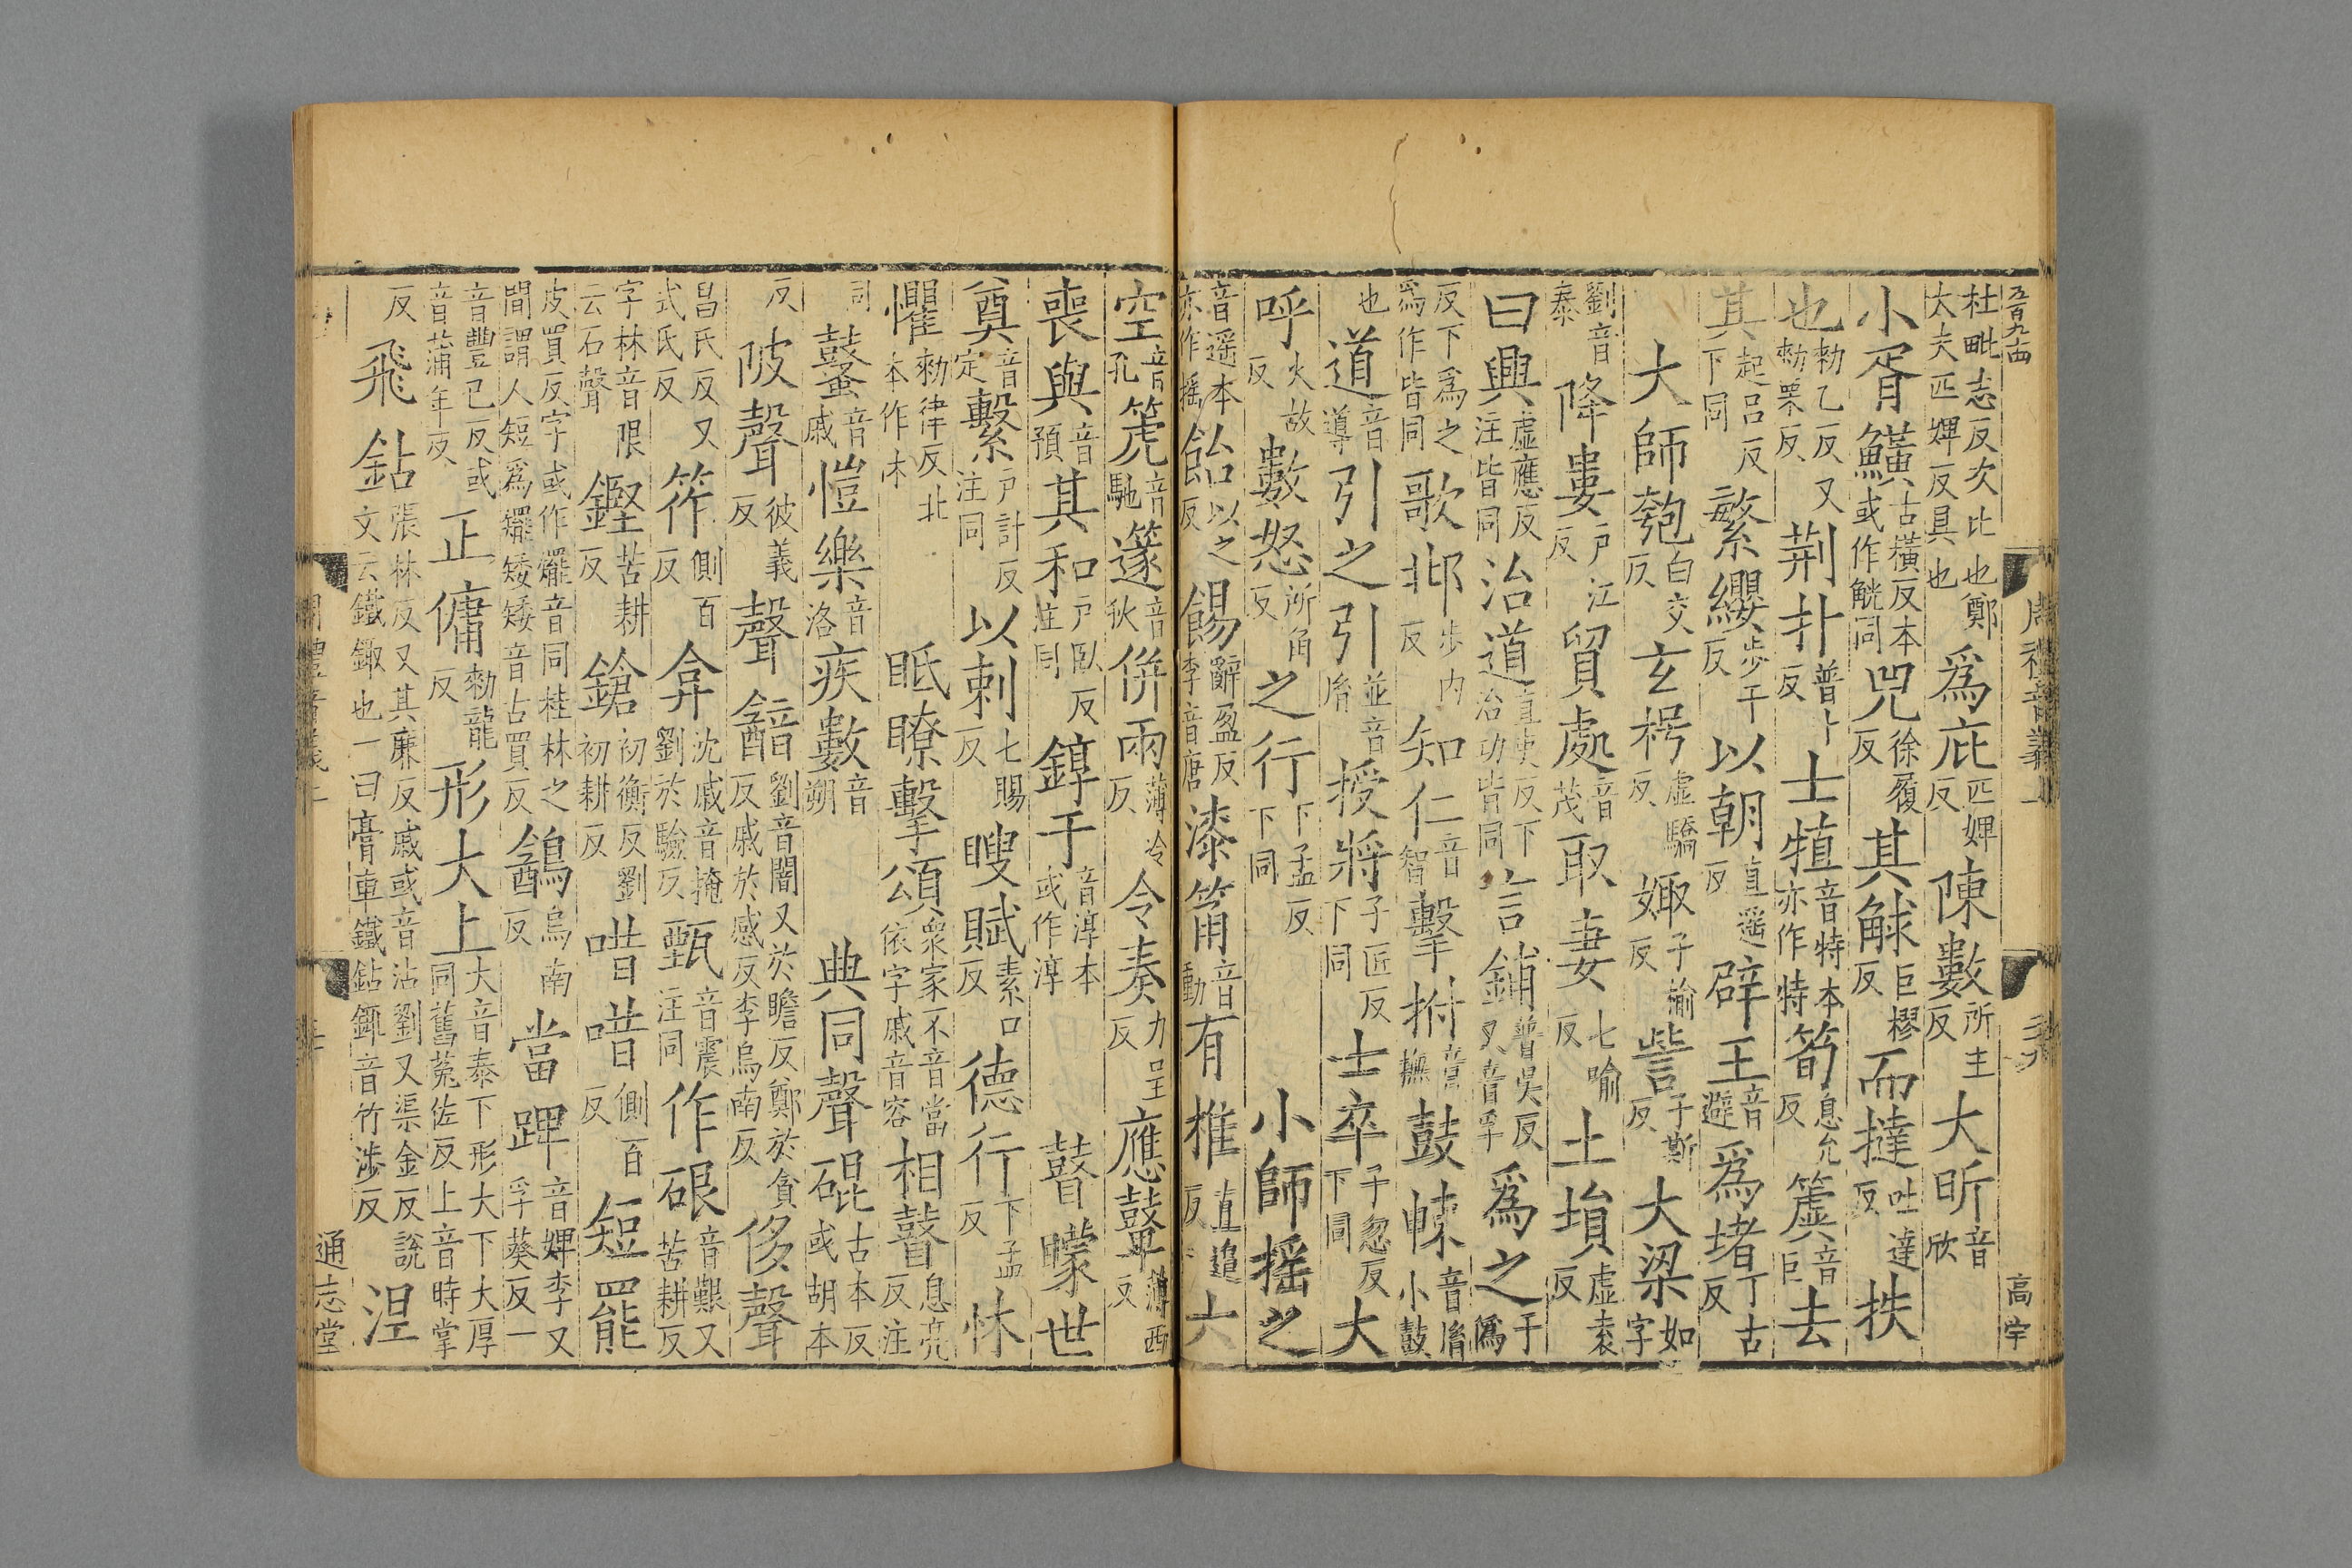 五百九十四
周禮音義上
高宇
杜毗志反次比也鄭大夫匹婢反具也 為庇匹婢反 陳數所主反 大昕音欣
小胥 觵古橫反本或作觥同 兕徐履反 其觩巨樛反 而撻吐達反 抶
也勑乙反又勑栗反 荊扑普卜反 士犆音特本亦作特 筍息允反 簴音巨 去
其起呂反下同 繁纓步干反 以朝直遥反 辟王音避 為堵丁古反
大師 匏白交反 玄枵虛驕反 娵子榆反 訾子斯反 大梁如字
劉音泰 降婁戶江反 貿處音茂 取妻七喻反 土塤虛袁反
曰興虛應反注皆同 治道直吏反下治功皆同 言鋪普吳反又音孚 為之于偽
反下為之為作皆同 歌邶步內反 知仁音智 擊拊音撫 鼓朄音胤小鼓
也 道音導 引之引並音胤 授將子匠反下同 士卒子忽反下同 大
呼火故反 數怒所角反 之行下孟反下同 小師 搖之
音遥本亦作摇 飴以之反 餳辭盈反李音唐 漆筩音動 有椎直追反 六
空音孔 篪音馳 篴音狄 併兩薄冷反 令奏力呈反 應鼙薄西反
喪與音預 其和戶臥反注同 錞于音淳本或作淳 瞽矇 世
奠音定 繫戶計反注同 以刺七賜反 瞍賦素口反 德行下孟反 怵
懼勑律反北本作朩 眡瞭 擊頌衆家不音當依字戚音容 相瞽息亮反注
同 鼜音戚 愷樂音洛 疾數音朔 典同 聲硍古本反或胡本
反 陂聲彼義反 聲韽劉音闇又於瞻反鄭於貪反戚於感反李烏南反 侈聲
昌氏反又式氏反 筰側百反 弇沈戚音掩劉於驗反 甄音震注同 作硍音艱又苦耕反
字林音限云石聲 鏗苦耕反 鎗初衡反劉初耕反 唶唶側百反 短罷
皮買反字或作䎱音同桂林之間謂人短為䎱矮矮音古買反 鵪烏南反 當 音婢李又孚葵反一
音豐已反或音蒲年反 正傭勑龍反 形大上大音泰下形大下大厚同舊菟佐反上音時掌
反 飛鉆張林反又其廉反戚或音沾劉又渠金反說文云鐵銸也一曰膏車鐵鉆銸音竹涉反 涅
通志堂